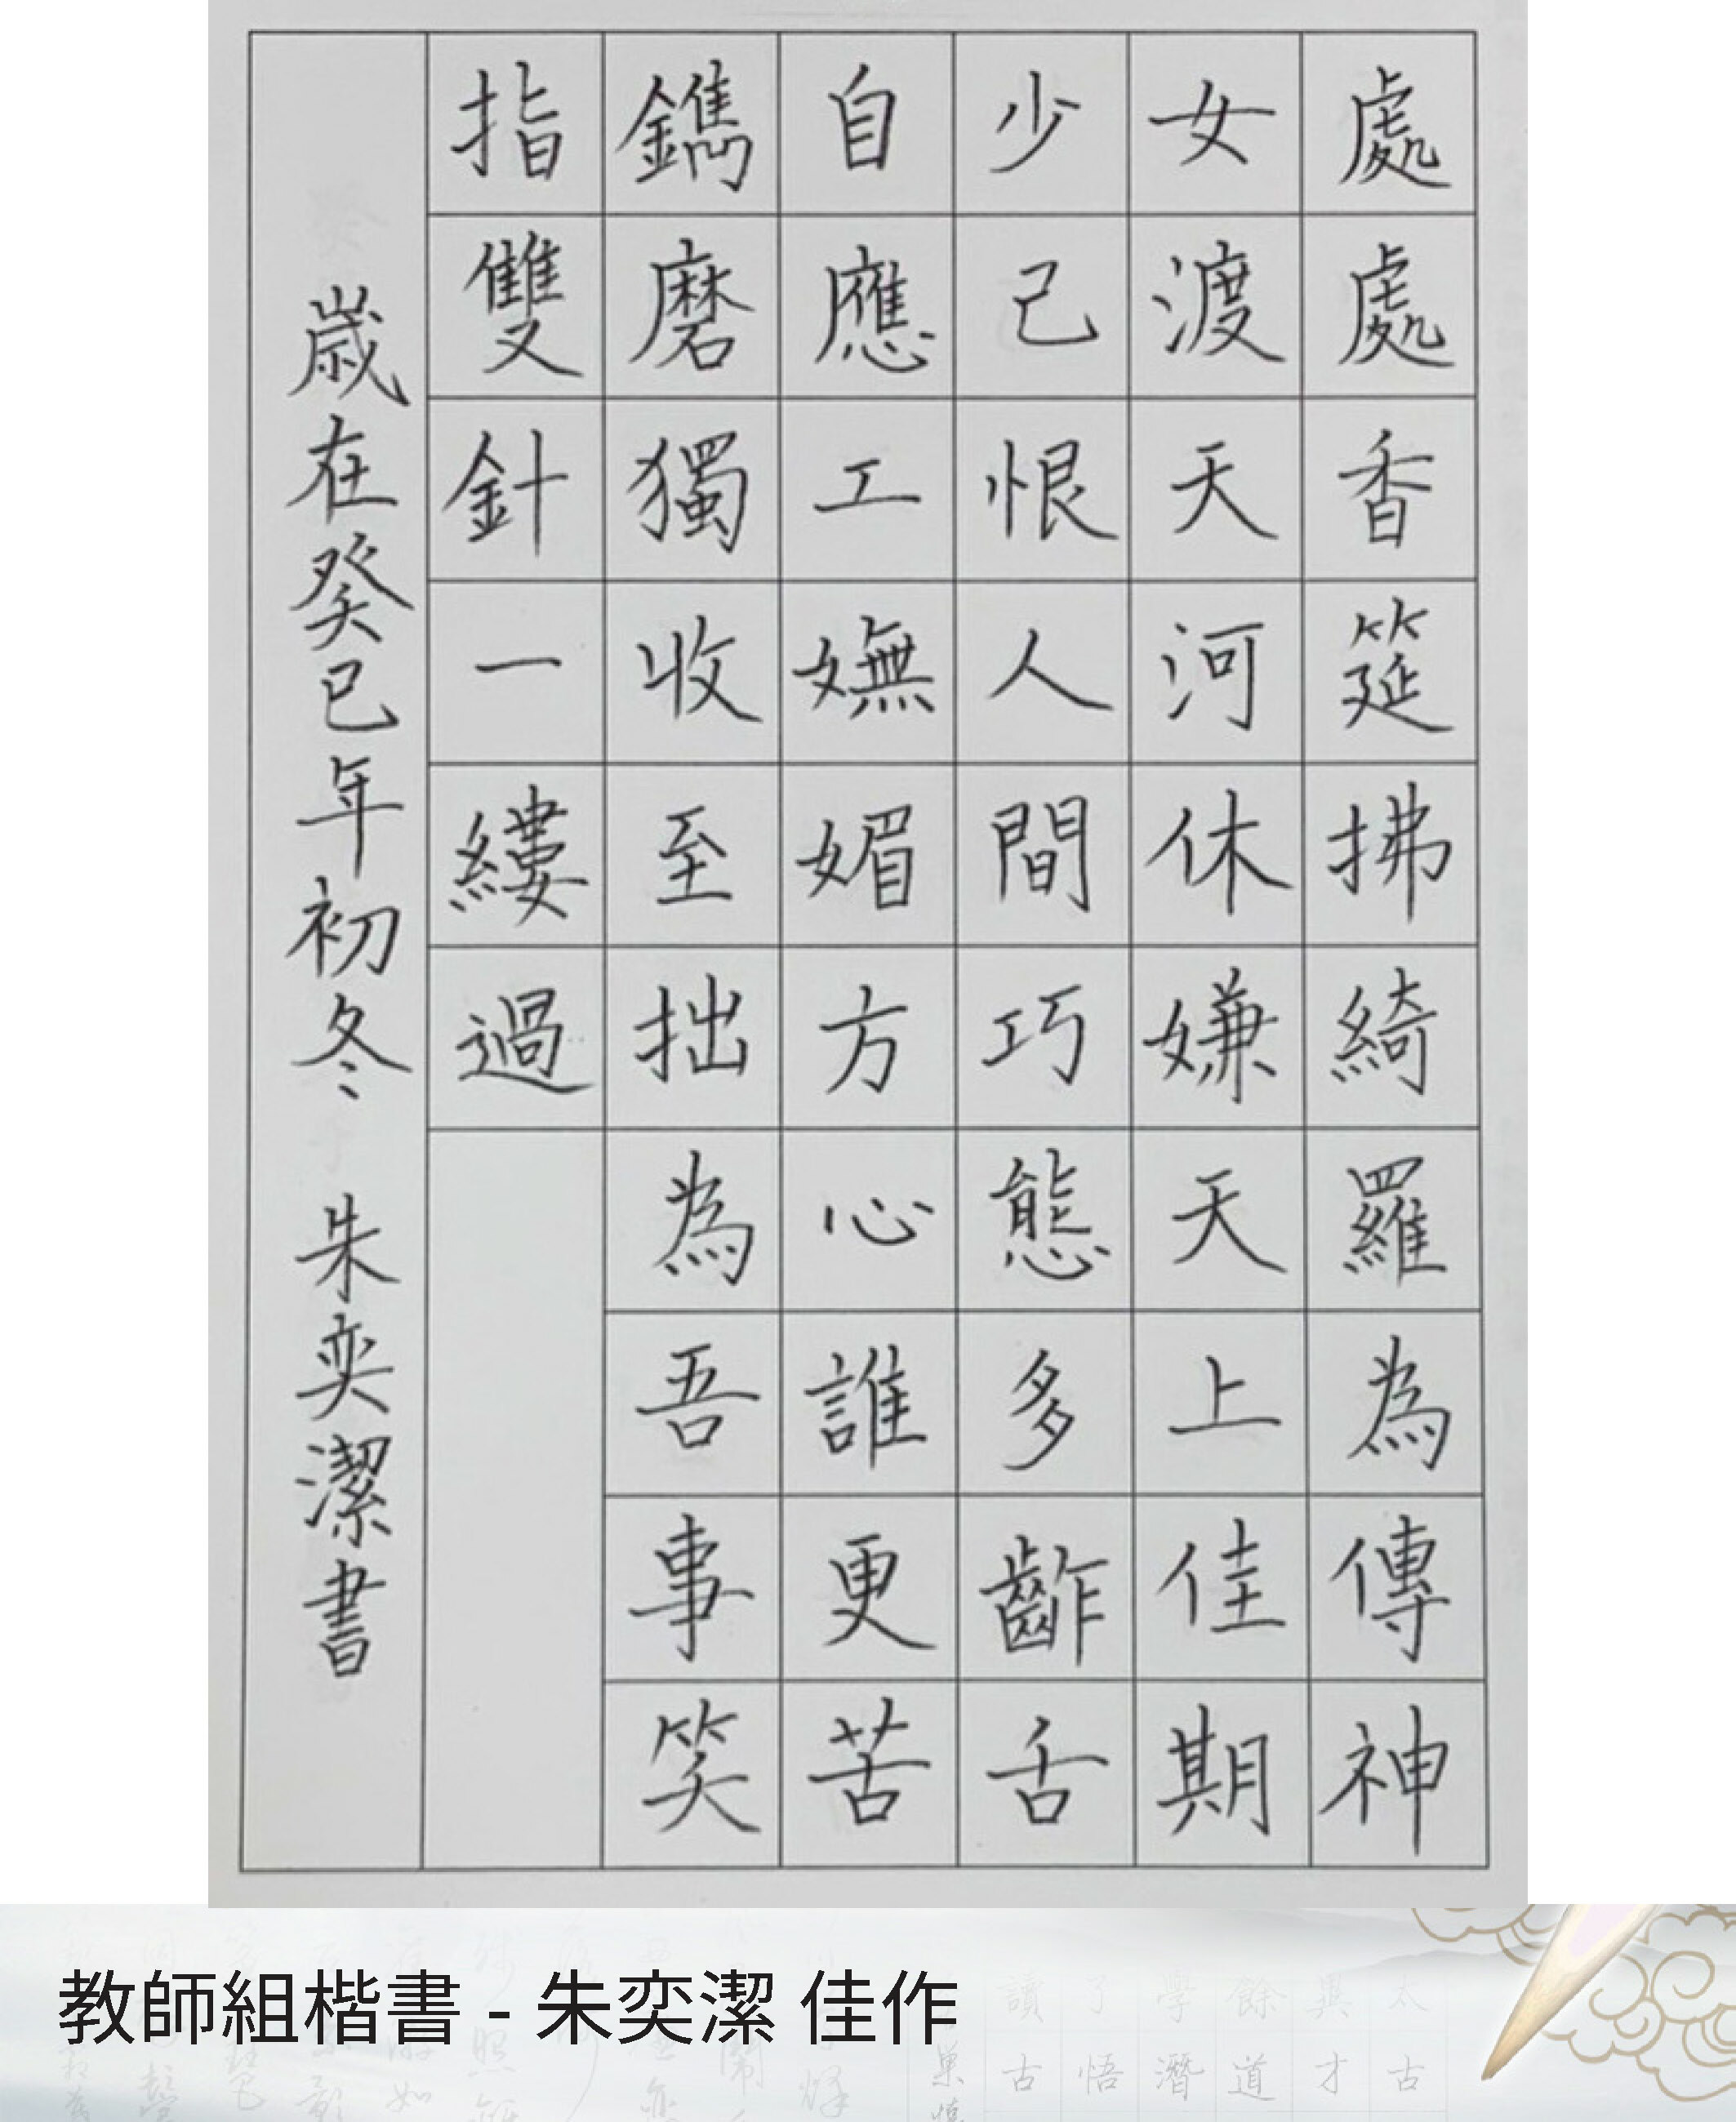 處處香筵拂綺羅為傳神
女渡天河休嫌天上佳期
少己恨人間巧態多齰舌
自應工嫵媚方心誰更苦
鐫磨獨收至拙為吾事笑
指雙針一縷過
歲在癸已年初冬 朱奕潔書
教師組楷書 - 朱奕潔 佳作